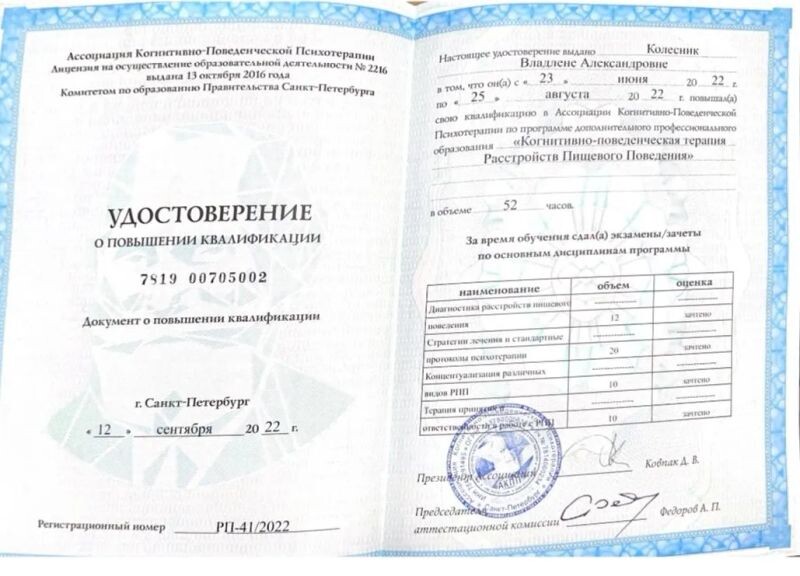 Ассоциация Когнитивно-Поведенческой Психотерапии
Лицензия на осуществление образовательной деятельности № 2216
выдана 13 октября 2016 года
Комитетом по образованию Правительства Санкт-Петербурга
УДОСТОВЕРЕНИЕ
О ПОВЫШЕНИИ КВАЛИФИКАЦИИ
7819 00705002
Документ о повышении квалификации
г. Санкт-Петербург
« 12 » сентября 20 22 г.
Регистрационный номер РП-41/2022
Настоящее удостоверение выдано Колесник
Владлене Александровне
в том, что он(а) с « 23 » июня 20 22 г.
по « 25 » августа 20 22 г. повышал(а)
свою квалификацию в Ассоциации Когнитивно-Поведенческой
Психотерапии по программе дополнительного профессионального
образования «Когнитивно-поведенческая терапия
Расстройств Пищевого Поведения»
в объеме 52 часов.
За время обучения сдал(а) экзамены/зачеты
по основным дисциплинам программы
наименование объем оценка
Диагностика расстройств пищевого
поведения 12 зачтено
Стратегии лечения и стандартные
протоколы психотерапии 20 зачтено
Концептуализация различных
видов РПП 10 зачтено
Терапия принятия и
ответственности в работе с РПП 10 зачтено
Президент Ассоциации Ковпак Д. В.
Председатель
аттестационной комиссии Федоров А. П.
АКПП
Санкт-Петербург